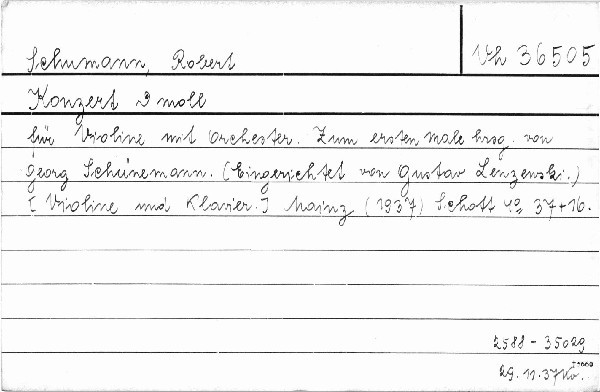 Schumann, Robert
Vh 36505
Konzert D moll
für Violine mit Orchester. Zum ersten Male hrsg. von
Georg Schünemann. (Eingerichtet von Gustav Lenzewski.)
[Violine und Klavier.] Mainz (1937) Schott 4º 37+16.
2588-35029
29.11.37